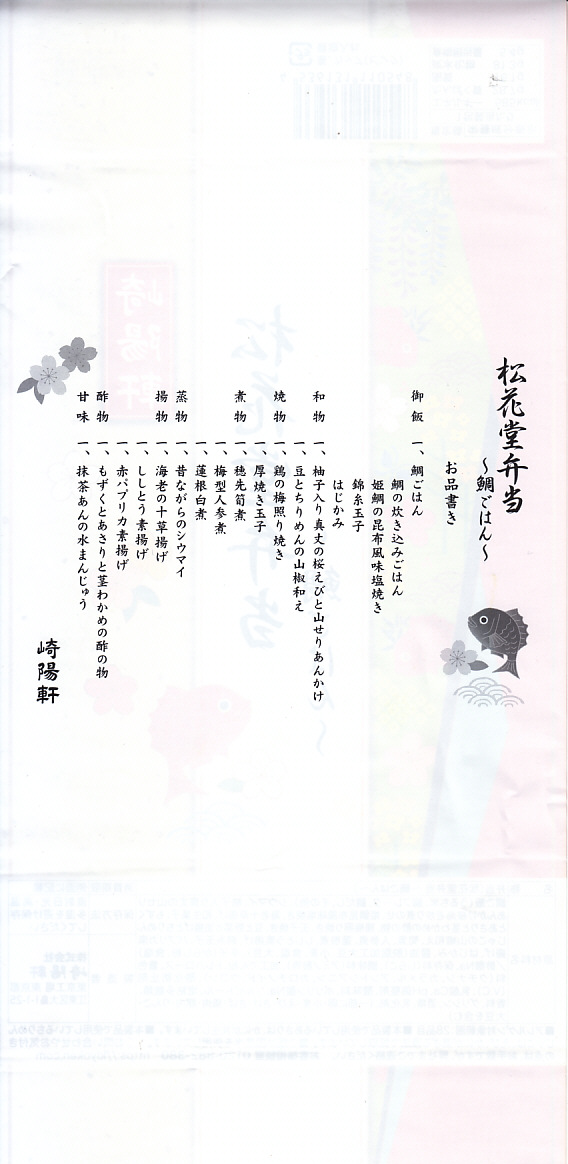 松花堂弁当
～鯛ごはん～
お品書き
御飯 一、鯛ごはん
鯛の炊き込みごはん
姫鯛の昆布風味塩焼き
錦糸玉子
はじかみ
和物 一、柚子入り真丈の桜えびと山せりあんかけ
一、豆とちりめんの山椒和え
焼物 一、鶏の梅照り焼き
一、厚焼き玉子
煮物 一、穂先筍煮
一、梅型人参煮
一、蓮根白煮
蒸物 一、昔ながらのシウマイ
揚物 一、海老の十草揚げ
一、ししとう素揚げ
一、赤パプリカ素揚げ
酢物 一、もずくとあさりと茎わかめの酢の物
甘味 一、抹茶あんの水まんじゅう
崎陽軒